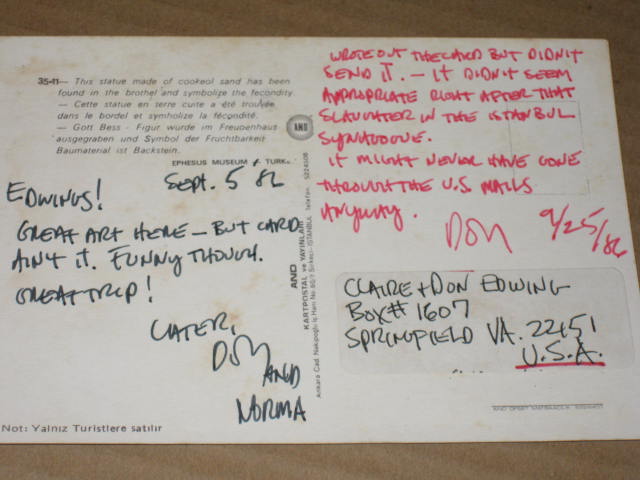 35-11— This statue made of cookeol sand has been
found in the brothel and symbolize the fecondity.
— Cette statue en terre cuite a été trouvée
dans le bordel et symholize la fécondité.
— Gott Bess - Figur wurde im Freupenhaus
ausgegraben und Symbol der Fruchtbarkeit
Baumaterial ist Backstein.
EPHESUS MUSEUM
Sept. 5 86
EDWINGS!
GREAT ART HERE — BUT CARD
AIN'T IT. FUNNY THOUGH.
GREAT TRIP!
LATER,
DON
AND
NORMA
Not: Yalnız Turistlere satılır
AND
AND
KARTPOSTAL ve YAYINLARI
WROTE OUT THE CARD BUT DIDN'T
SEND IT. — IT DIDN'T SEEM
APPROPRIATE RIGHT AFTER THAT
SLAUGHTER IN THE ISTANBUL
SYNAGOGUE.
IT MIGHT NEVER HAVE GONE
THROUGH THE U.S. MAILS
ANYWAY.
DON
9/25/86
CLAIRE + DON EDWING
BOX# 1607
SPRINGFIELD VA. 22151
U.S.A.